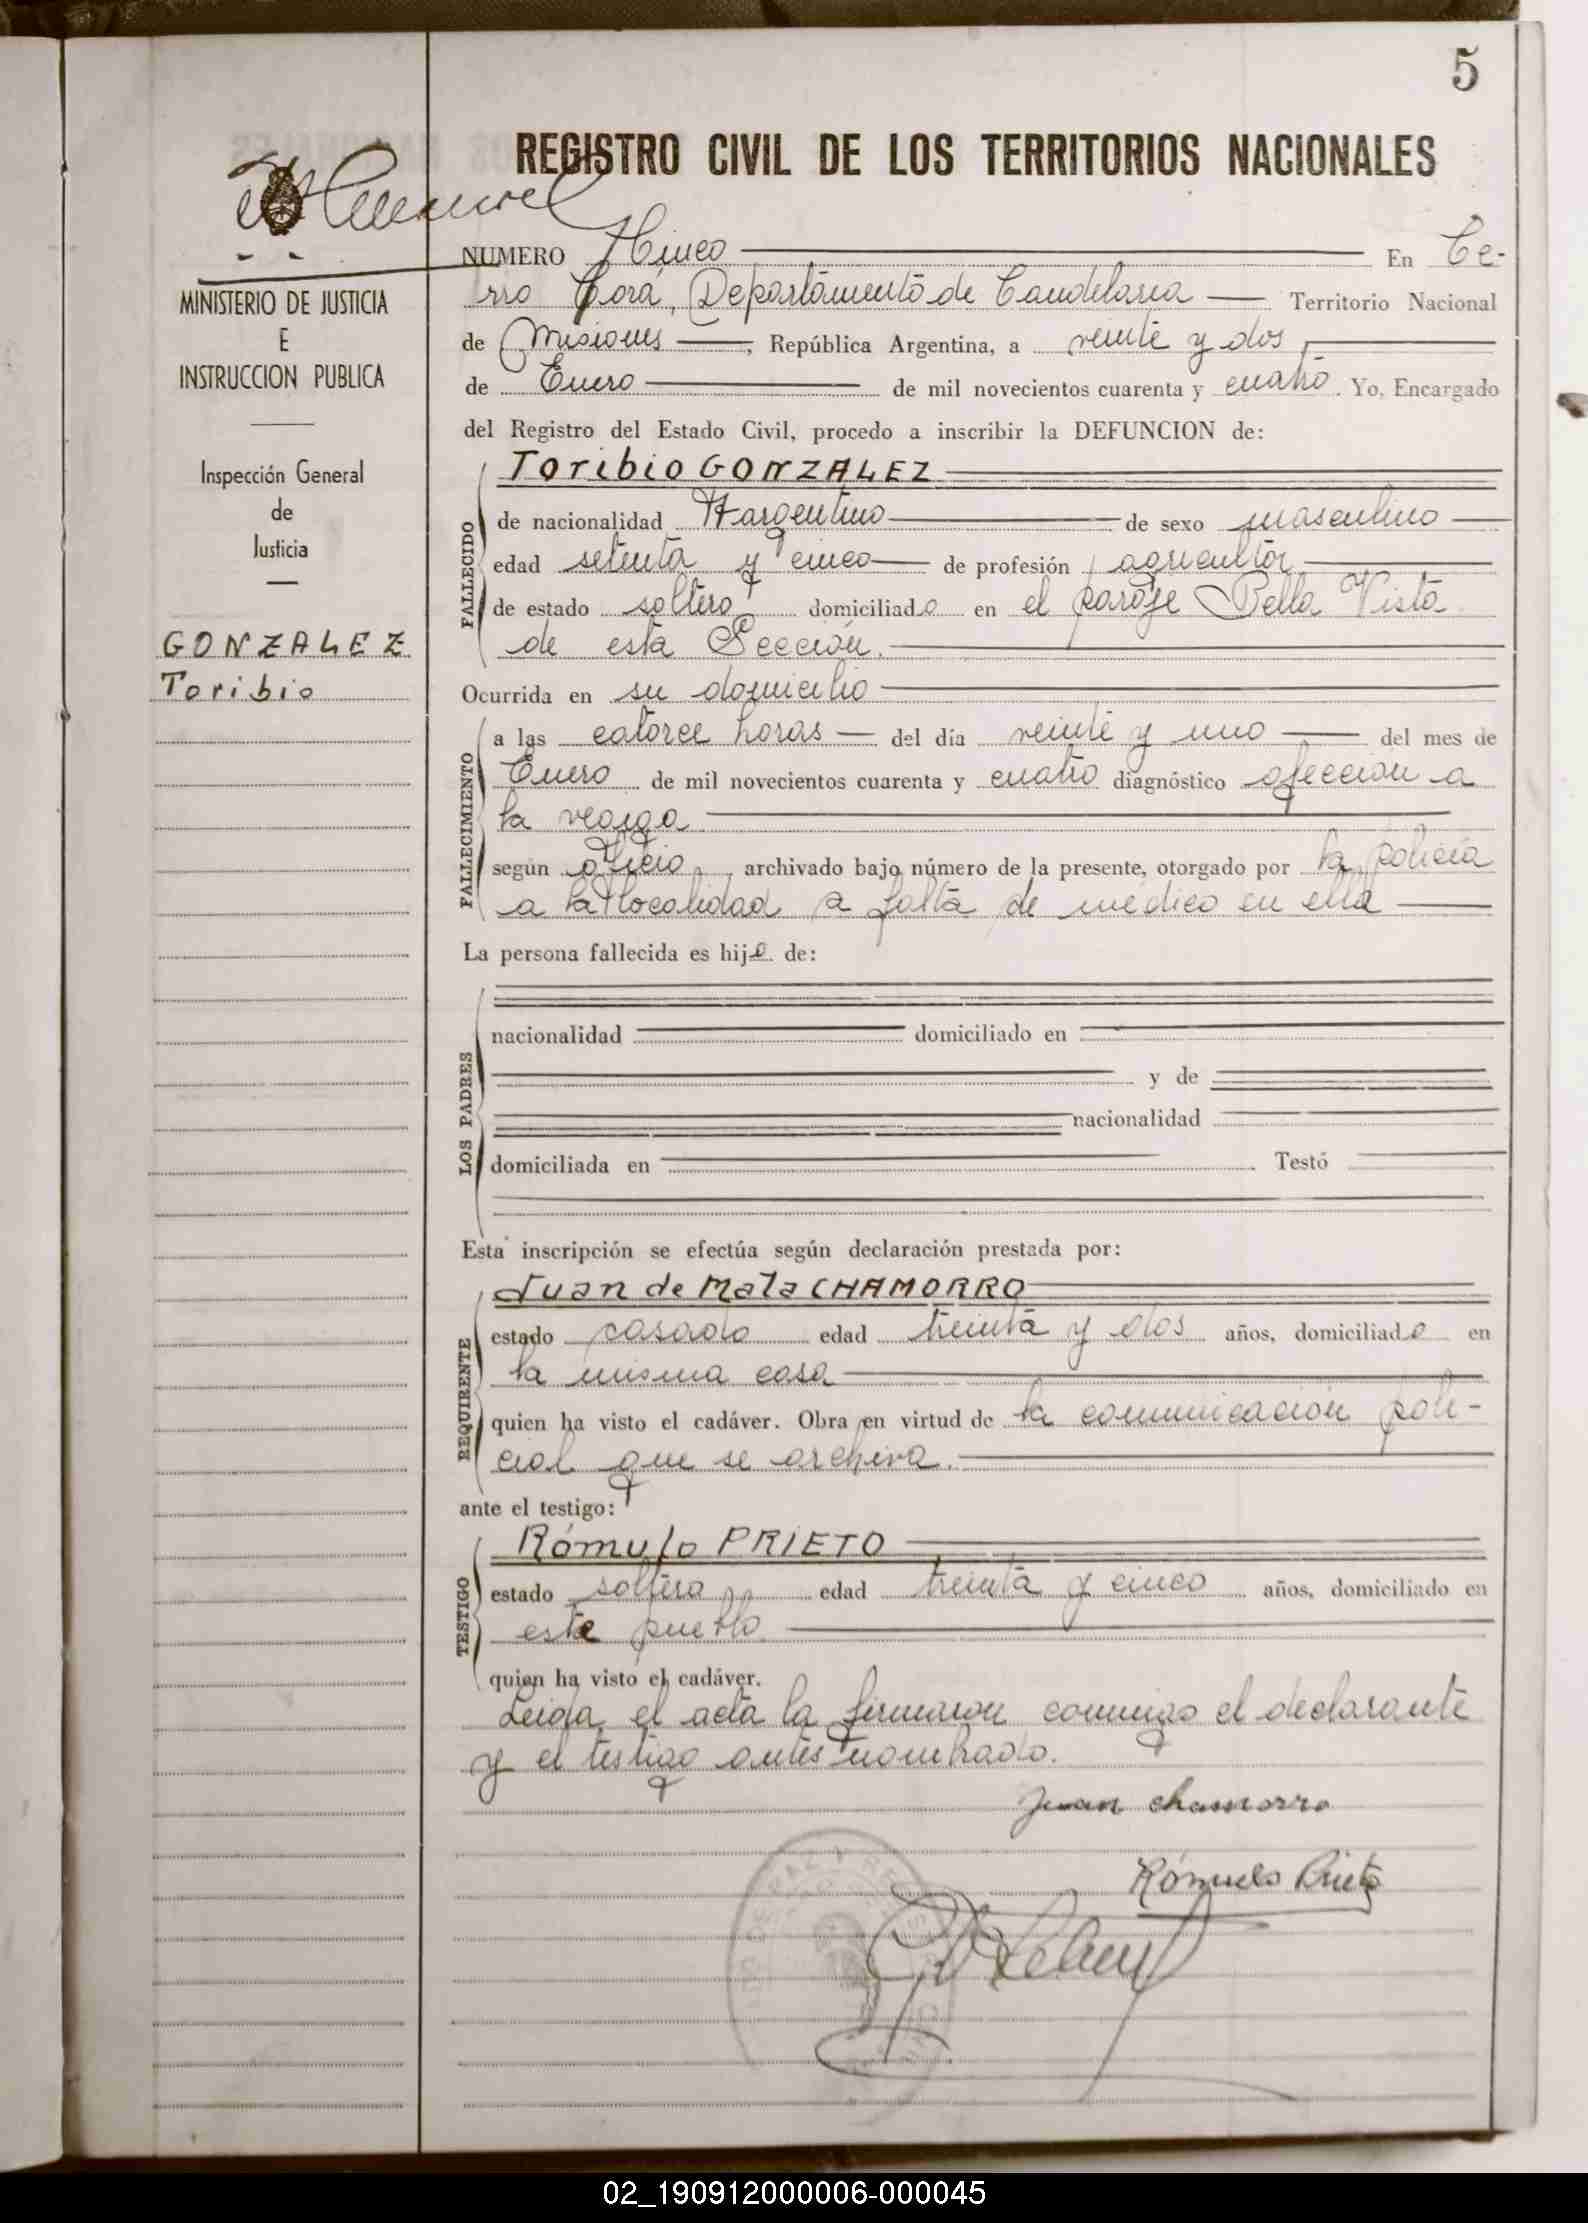 5
REGISTRO CIVIL DE LOS TERRITORIOS NACIONALES
MINISTERIO DE JUSTICIA
E
INSTRUCCION PUBLICA
Inspección General
de
Justicia
GONZALEZ
Toribio
NUMERO Cinco En Ce-
rro Corá, Departamento de Candelaria Territorio Nacional
de Misiones, República Argentina, a veinte y dos
de Enero de mil novecientos cuarenta y cuatro. Yo, Encargado
del Registro del Estado Civil, procedo a inscribir la DEFUNCION de:
Toribio GONZALEZ
FALLECIDO
de nacionalidad Argentino de sexo masculino
edad setenta y cinco de profesión agricultor
de estado soltero domiciliado en el paraje Bella Vista
de esta Sección.
Ocurrida en su domicilio
FALLECIMIENTO
a las catorce horas del día veinte y uno del mes de
Enero de mil novecientos cuarenta y cuatro diagnóstico afección a
la
según oficio, archivado bajo número de la presente, otorgado por la policía
a la localidad a falta de médico en ella
La persona fallecida es hijo de:
LOS PADRES
nacionalidad domiciliado en
y de
nacionalidad
domiciliada en Testó
Esta inscripción se efectúa según declaración prestada por:
Juan de Mata CHAMORRO
REQUIRENTE
estado casado edad treinta y dos años, domiciliado en
la misma casa
quien ha visto el cadáver. Obra en virtud de la comunicación poli-
cial que se archiva.
ante el testigo:
Rómulo PRIETO
TESTIGO
estado soltero edad treinta y cinco años, domiciliado en
este pueblo
quien ha visto el cadáver.
Leida el acta la firmaron conmigo el declarante
y el testigo antes nombrado.
Juan Chamorro
Rómulo Prieto
02_190912000006-000045